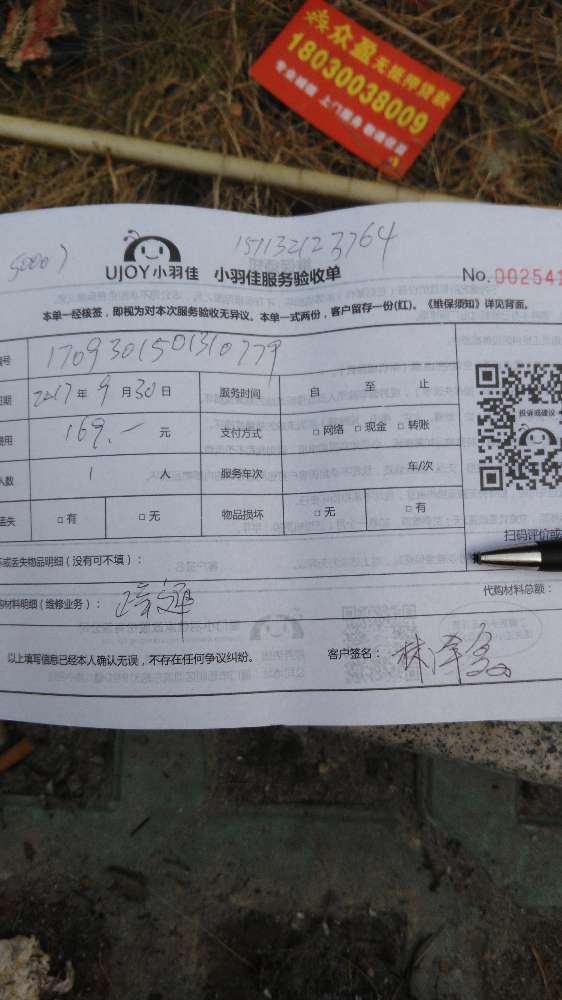 众盈无抵押贷款
18030038009
专业诚信 上门服务
151132123764
UJOY小羽佳 小羽佳服务验收单
No. 002541
本单一经核签，即视为对本次服务验收无异议。本单一式两份，客户留存一份(红)。《维保须知》详见背面。
号 170930150310779
期 2017年9月30日 服务时间 自 至 止
费用 169.- 元 支付方式 □ 网络 □ 现金 □ 转账
人数 1 人 服务年次 年/次
丢失 □ 有 □ 无 物品损坏 □ 无 □ 有
投诉或建议
扫码评价或
或丢失物品明细（没有可不填）：
代购材料总额：
购材料明细（维修业务）：
以上填写信息已经本人确认无误，不存在任何争议纠纷。 客户签名：